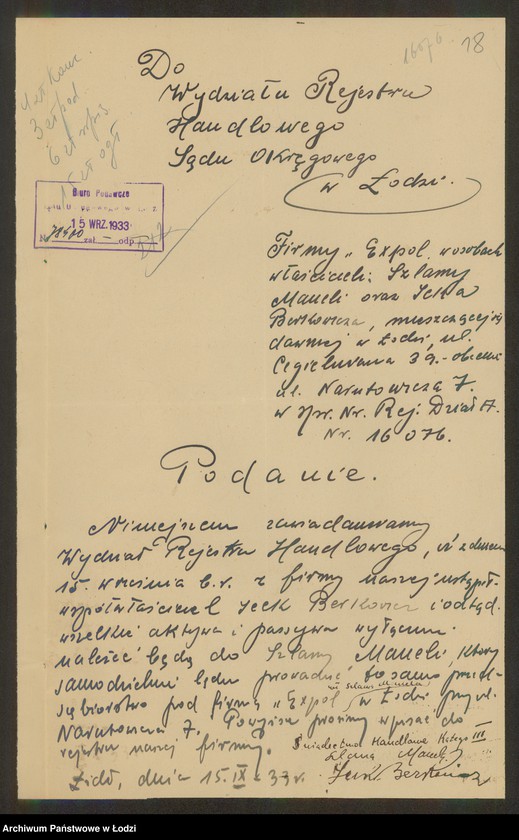 16076
18
Do
Wydziału Rejestru
Handlowego
Sądu Okręgowego
w Łodzi.
Biuro Podawcze
15 WRZ. 1933
zał — odp.
Firmy „Expol" w osobach
właścicieli: Szlamy
Maneli oraz Icka
Berkowicza, mieszczącej się
dawniej w Łodzi, ul.
Cegielniana 39.- obecnie
ul. Narutowicza 7.
w spr. Nr. Rej. Dział A.
Nr. 16076.
Podanie.
Niniejszem zawiadamiamy
Wydział Rejestru Handlowego, iż z dniem
15. września b.r. z firmy naszej ustąpił
współwłaściciel Icek Berkowicz i odtąd
wszelkie aktywa i passywa wyłącznie
należeć będą do Szlamy Maneli, który
samodzielnie będzie prowadzić to samo przed-
siębiorstwo pod firmą „Expol" w Łodzi przy ul.
Narutowicza 7. Powyższe prosimy wpisać do
rejestru naszej firmy.
Świadectwo Handlowe Kategorji III
Łódź, dnia 15.IX.33 r.
Szlama Manela
Icek Berkowicz
Archiwum Państwowe w Łodzi